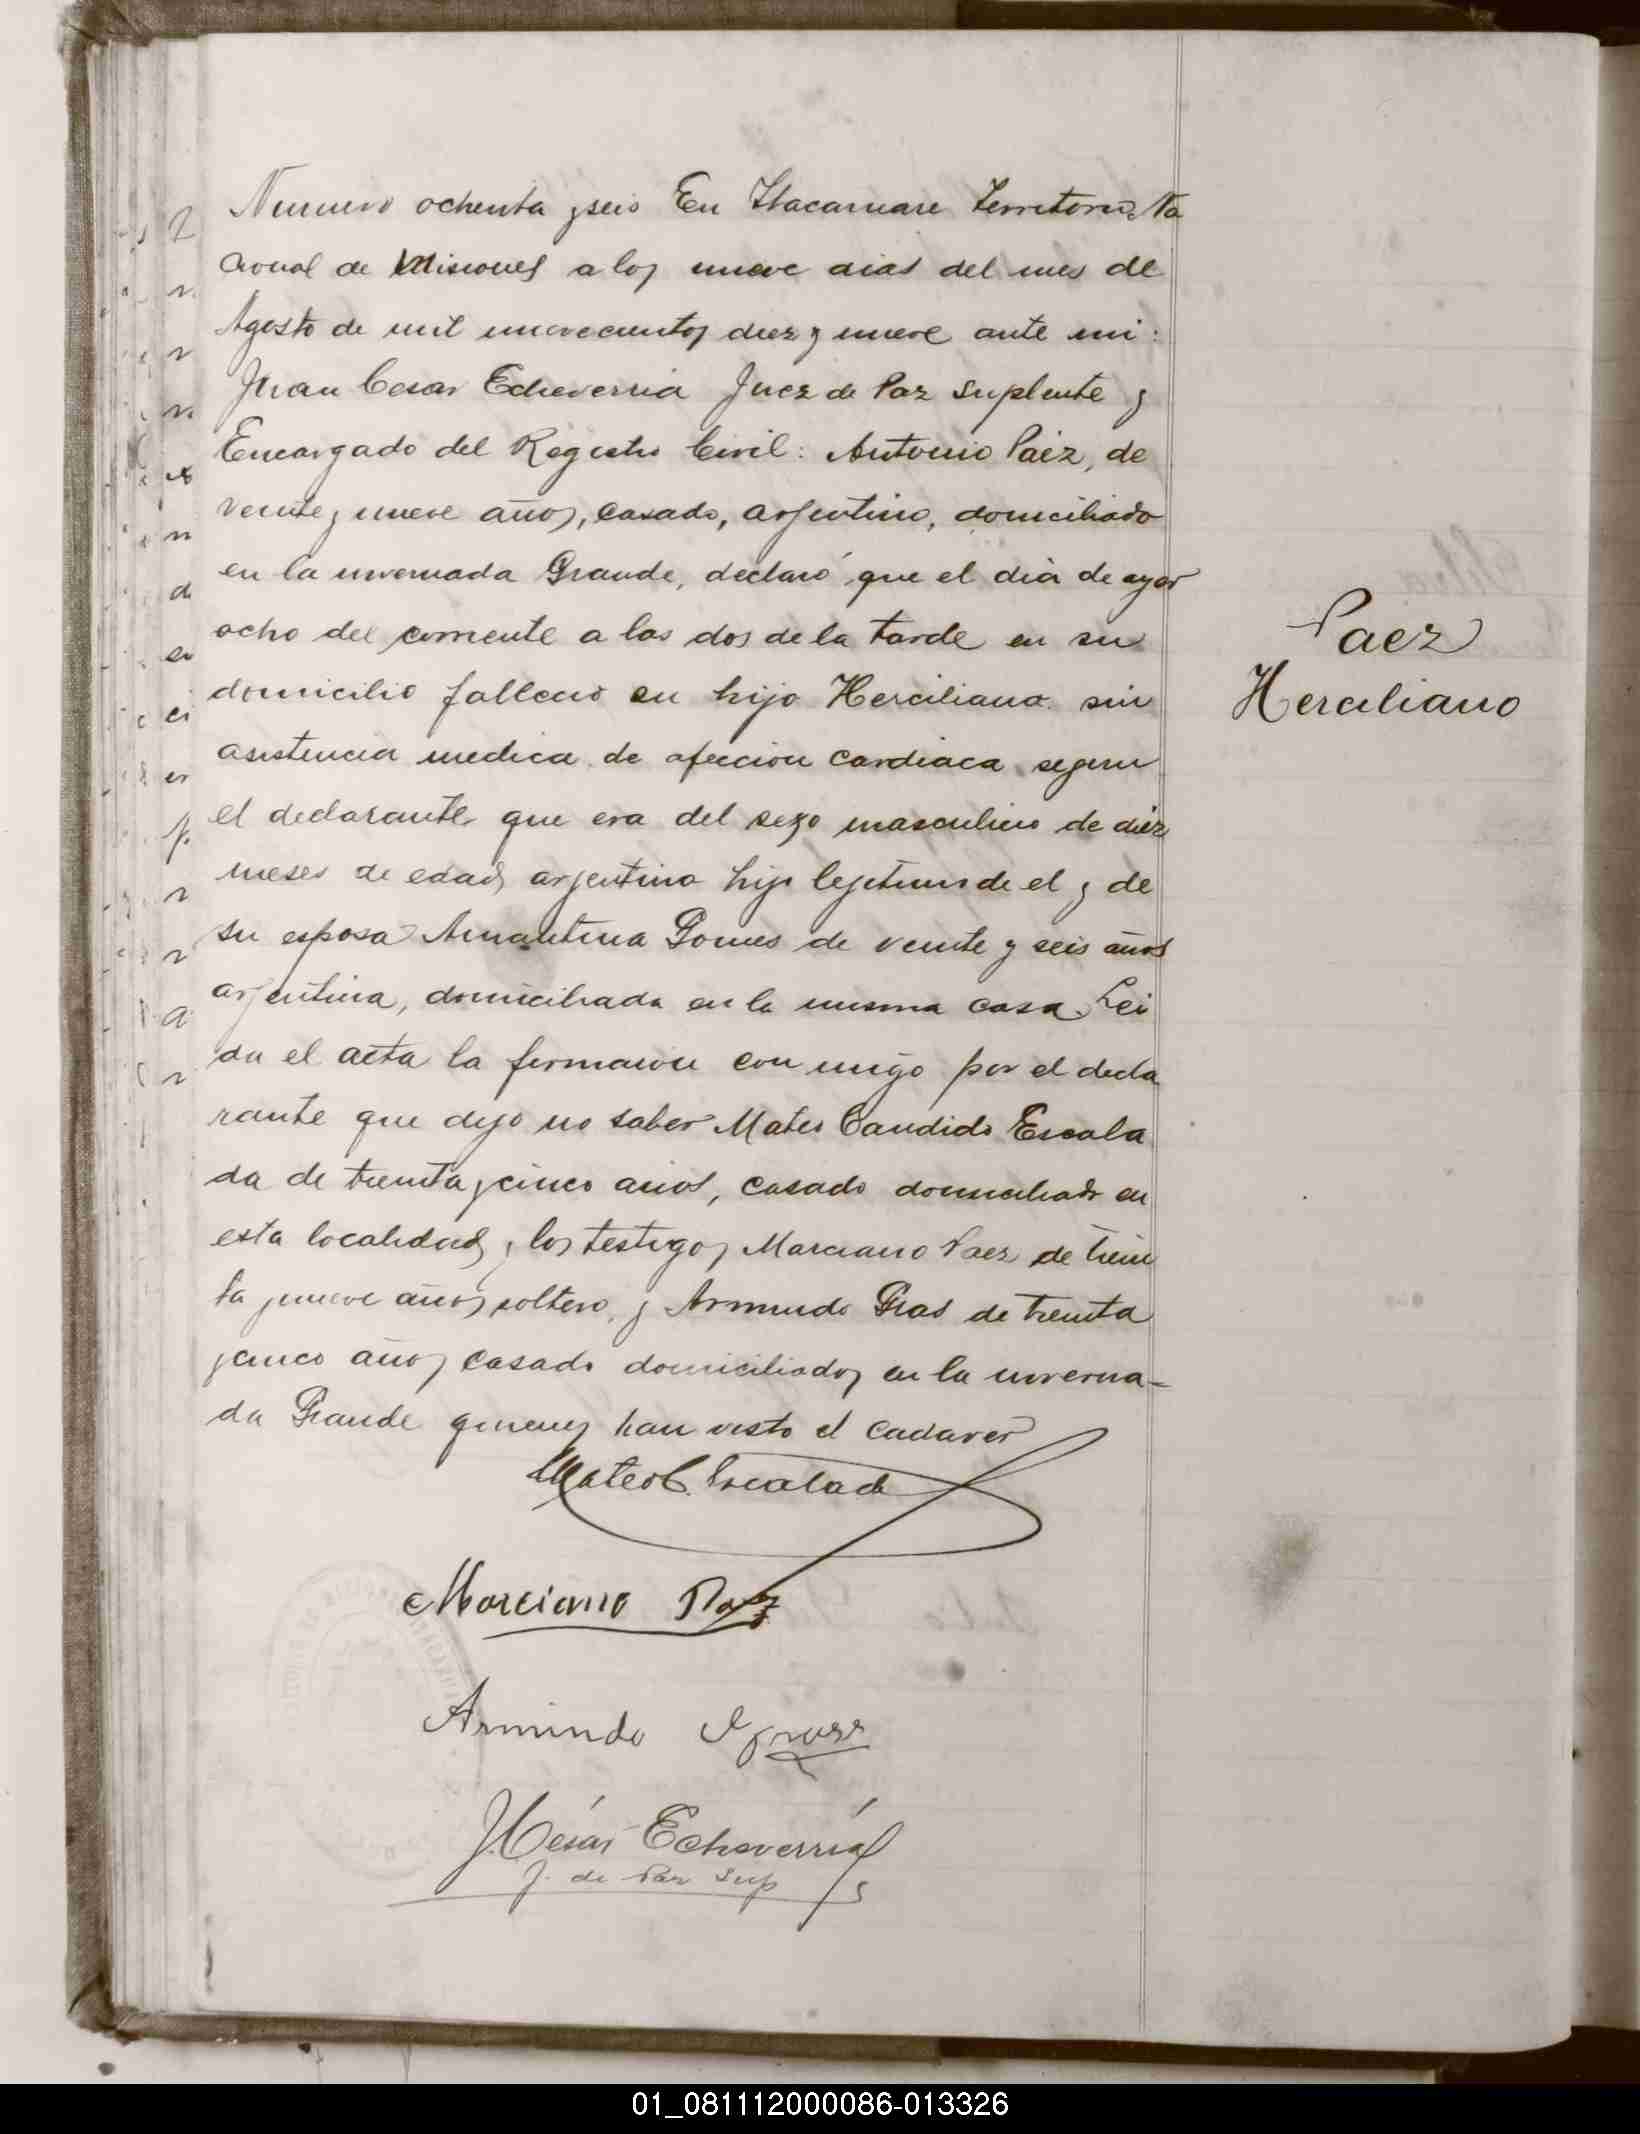 Numero ochenta y seis En Itacaruare Territorio Na
cional de Misiones a los nueve dias del mes de
Agosto de mil novecientos diez y nueve ante mi:
Juan Cesar Echeverria Juez de Paz Suplente y
Encargado del Registro Civil: Antonio Paez, de
veinte y nueve años, casado, argentino, domiciliado
en la invernada Grande, declaró que el dia de ayer
ocho del corriente a las dos de la tarde en su
domicilio fallecio su hijo Herciliano sin
asistencia medica de afeccion cardiaca segun
el declarante que era del sexo masculino de diez
meses de edad argentino hijo lejitimo de el y de
su esposa Amantina Gomes de veinte y seis años
argentina, domiciliada en la misma casa. Lei
da el acta la firmaron con migo por el decla
rante que dijo no saber Mateo Candido Escala
da de treinta y cinco años, casado domiciliado en
esta localidad y los testigos Marciano Paez de trein
ta y nueve años soltero, y Armindo Gras de treinta
y cinco años casado domiciliados en la inverna-
da Grande quienes han visto el cadaver
Mateo C. Escalada
Marciano Paez
Armindo
J. César Echeverría
J. de Paz Sup
Paez
Herciliano
01_081112000086-013326